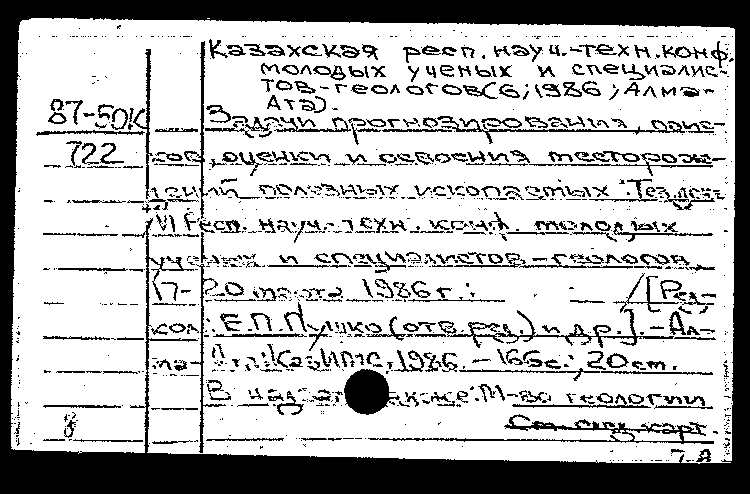 Казахская респ. науч.-техн. конф.
молодых ученых и специалис-
тов-геологов (6; 1986; Алма-
Ата).
87-50К Задачи прогнозирования, поис-
722 ков, оценки и освоения месторож-
дений полезных ископаемых: Тез. докл.
VI Респ. науч.-техн. конф. молодых
ученых и специалистов-геологов,
17-20 марта 1986 г.: / [Ред-
кол.: Е.П. Пушко (отв. ред.) и др.]. - Ал-
ма-Ата: КазИМС, 1986. - 166 с.; 20 см.
В над также: М-во геологии
См. след. карт.
8
7-8